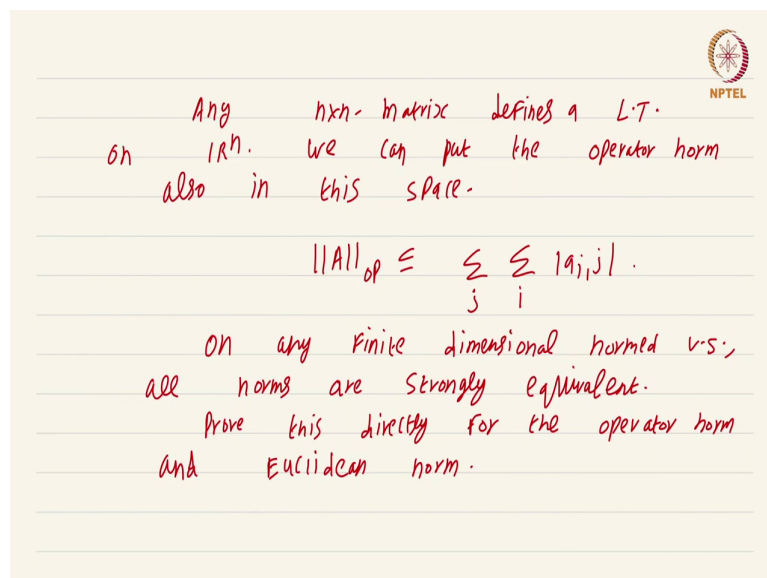 NPTEL
Any nxn- matrix defines a L.T.
on ℝⁿ. We can put the operator norm
also in this space.
||A||_op ≤ Σ_j Σ_i |a_{i,j}|.
On any finite dimensional normed v.s.,
all norms are strongly equivalent.
Prove this directly for the operator norm
and Euclidean norm.